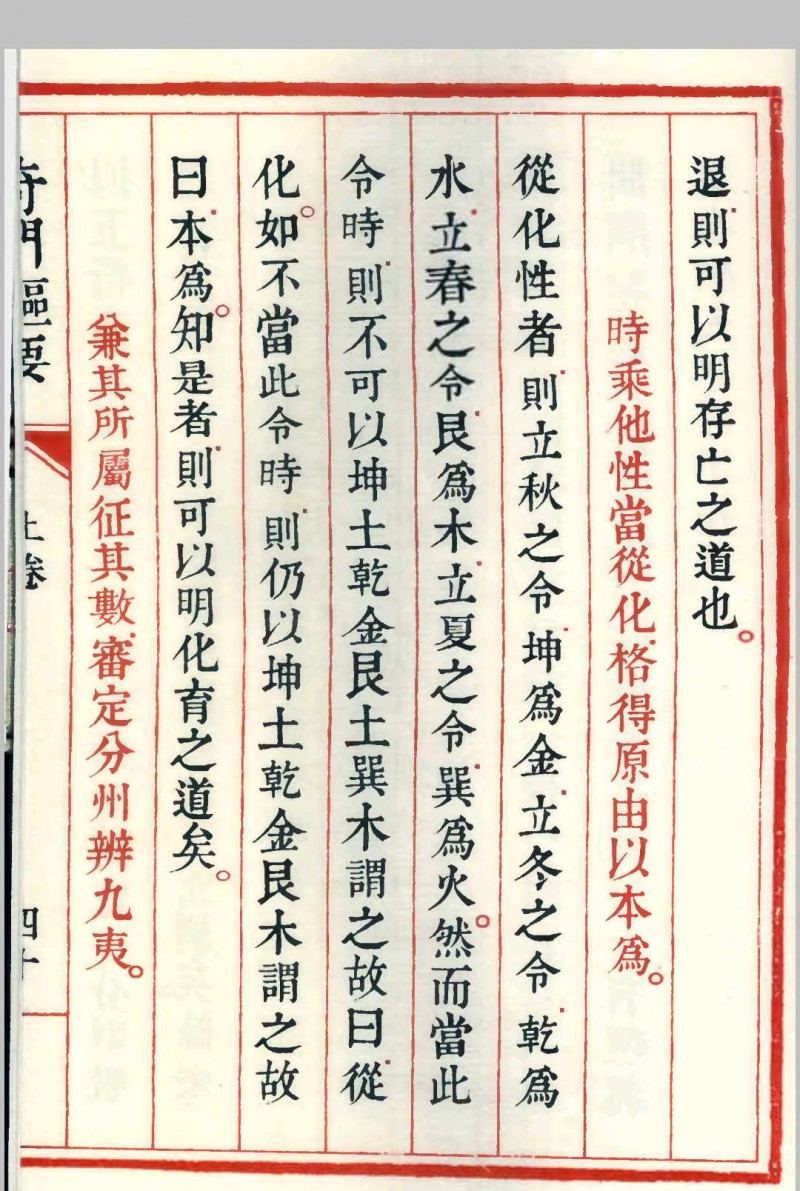 退則可以明存亡之道也。
時乘他性當從化格得原由以本爲。
從化性者則立秋之令坤爲金立冬之令乾爲
水立春之令艮爲木立夏之令巽爲火。然而當此
令時則不可以坤土乾金艮土巽木謂之故曰從
化。如不當此令時則仍以坤土乾金艮木謂之故
曰本爲。知是者則可以明化育之道矣。
兼其所屬征其數審定分州辨九夷。
奇門樞要
上卷
四十